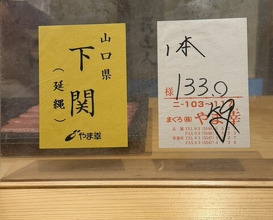 山口県
下関
(延縄)
やま幸
1本
様
133.0
ニ-103~1
まぐろ(株) やま幸